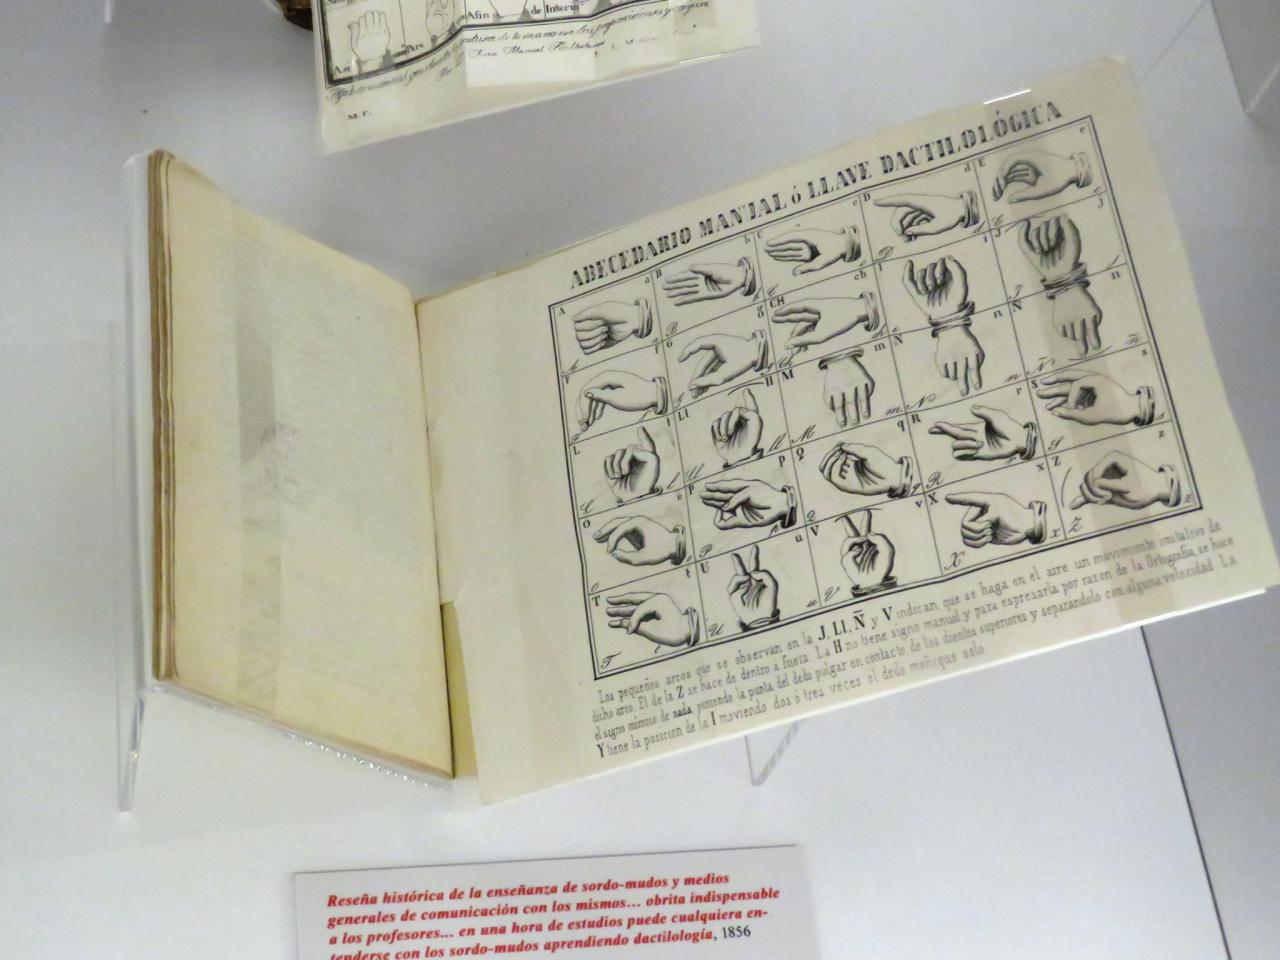 Afin de Interin
M. F.
ABECEDARIO MANUAL ó LLAVE DACTILOLÓGICA
A a B b C c D d E e
F f G g CH ch I i J j
L l Ll ll M m N n Ñ ñ
O o P p Q q R r S s
T t U u V v X x Z z
Los pequeños arcos que se observan en la J, Ll, Ñ y V indican que se haga en el aire un movimiento imitativo de
dicho arco. El de la Z se hace de dentro á fuera. La H no tiene signo manual y para espresarla por razon de la Ortografia, se hace
el signo mímico de nada, poniendo la punta del dedo pulgar en contacto de los dientes superiores y separandolo con alguna velocidad. La
Y tiene la posicion de la I moviendo dos ó tres veces el dedo meñique solo.
Reseña histórica de la enseñanza de sordo-mudos y medios
generales de comunicación con los mismos... obrita indispensable
a los profesores... en una hora de estudios puede cualquiera en-
tenderse con los sordo-mudos aprendiendo dactilología, 1856